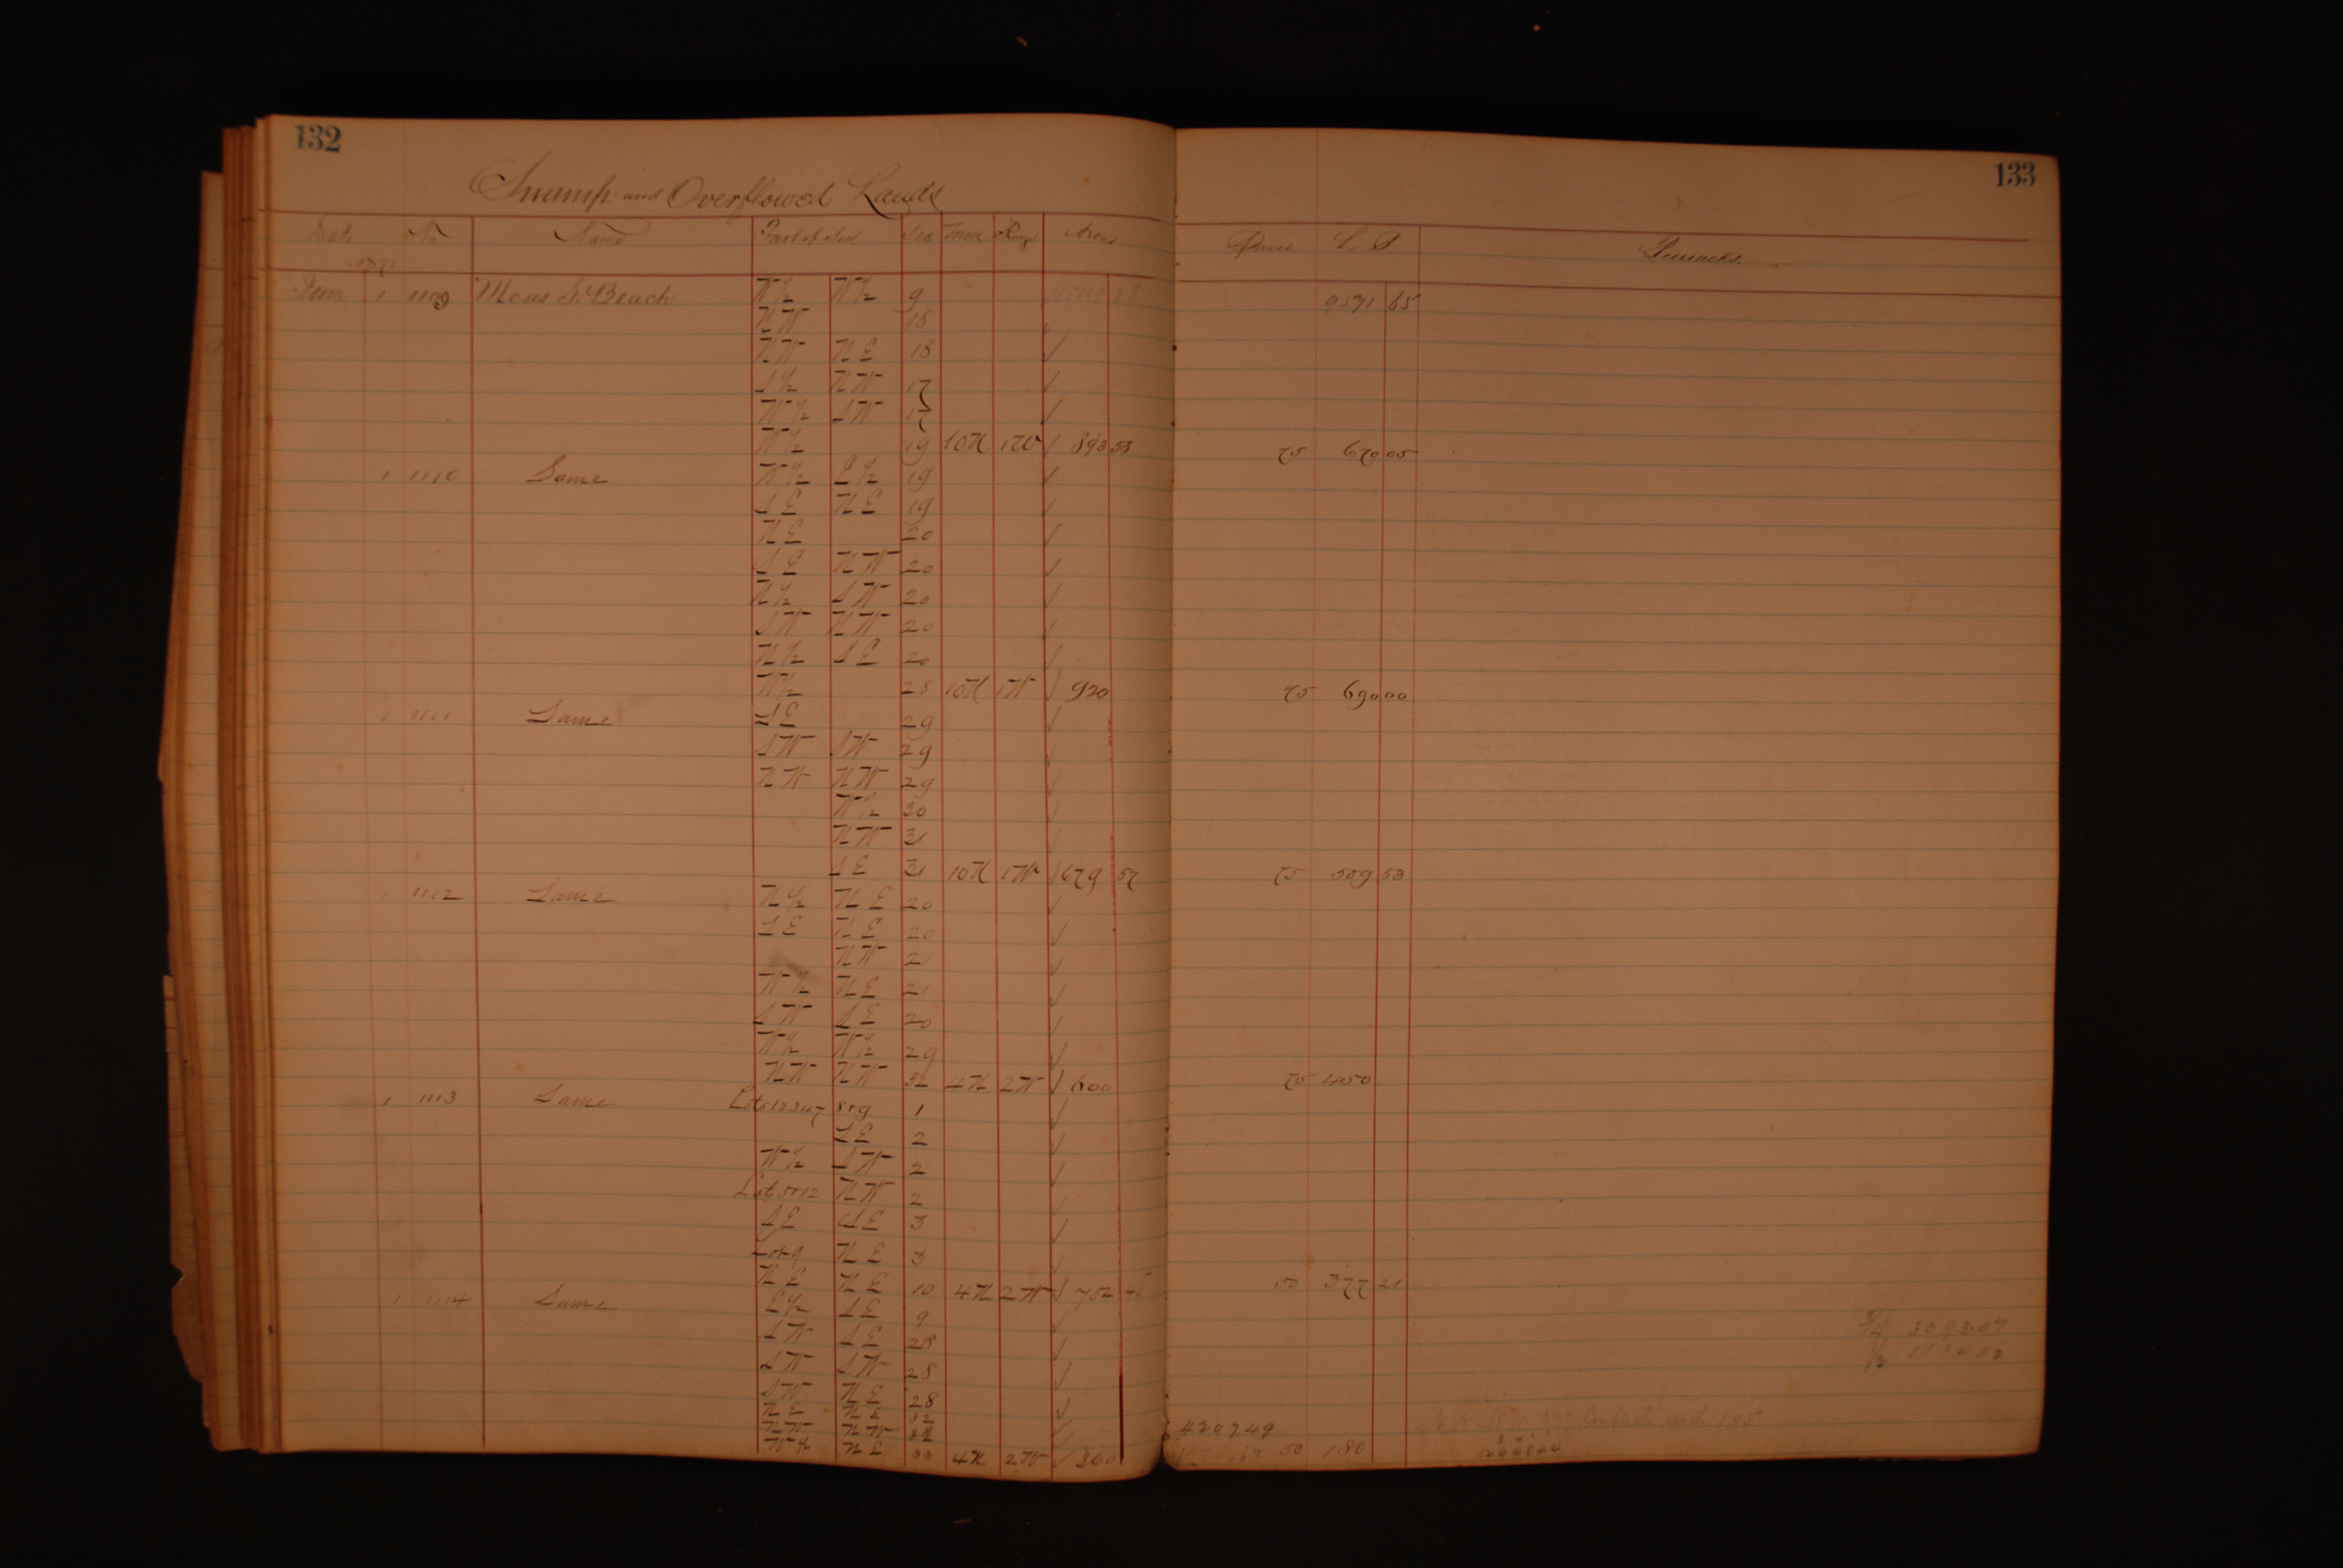 132
133
Swamp and Overflowed Lands
Date No Name Part of Sec Sec Town Range Area Price L P Remarks
1109 Moses S. Beach W½ W½ 9 9571 65
NW 18
NW NE 18
S½ NW 17
W½ SW 17
W½ 19 10N 1W 893 53 75 670 05
1 1110 Same W½ E½ 19
SE NE 19
NE 20
SE NW 20
N½ SW 20
SW NW 20
N½ SE 20
W½ 28 10N 1W 920 75 690 00
1 1111 Same SE 29
SW SW 29
NW NW 29
W½ 30
NW 31
SE 31 10N 1W 679 57 75 509 53
1 1112 Same N½ NE 20
SE NE 20
NW 21
W½ NE 21
SW SE 20
W½ W½ 29
NW NW 32 4N 2W 600 75 450
1 1113 Same Lots 1 2 3 4 7 8 & 9 1
SE 2
W½ SW 2
Lots 5 & 12 NW 2
SE SE 3
Lot 9 NE 3
NE NE 10 4N 2W 754 42 50 377 21
1 1114 Same E½ SE 9
SW SE 28
SW SW 28
SW NE 28
NE NE 32
NW NW
W½ NE 33 4N 2W 360 50 180
3/4
1/2
4207 49
Conflicts with